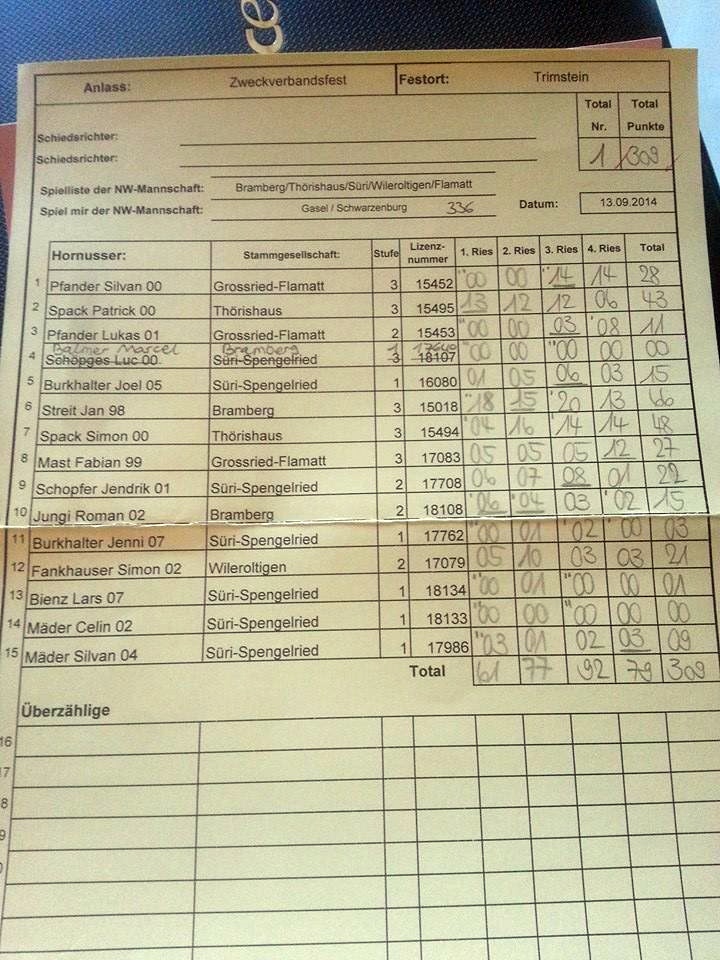 ce
Anlass: Zweckverbandsfest Festort: Trimstein
Total Total
Nr. Punkte
Schiedsrichter:
Schiedsrichter:
1 309
Spielliste der NW-Mannschaft: Bramberg/Thörishaus/Süri/Wileroltigen/Flamatt
Spiel mir der NW-Mannschaft: Gasel / Schwarzenburg 336 Datum: 13.09.2014
Hornusser: Stammgesellschaft: Stufe Lizenz-nummer 1. Ries 2. Ries 3. Ries 4. Ries Total
1 Pfander Silvan 00 Grossried-Flamatt 3 15452 "00 00 "14 14 28
2 Spack Patrick 00 Thörishaus 3 15495 13 12 12 06 43
3 Pfander Lukas 01 Grossried-Flamatt 2 15453 "00 00 03 '08 11
Balmer Marcel Bramberg 1 17640
4 Schöpges Luc 00 Süri-Spengelried 3 18107 "00 00 "00 00 00
5 Burkhalter Joel 05 Süri-Spengelried 1 16080 01 05 06 03 15
6 Streit Jan 98 Bramberg 3 15018 "18 15 '20 13 66
7 Spack Simon 00 Thörishaus 3 15494 '04 16 '14 14 48
8 Mast Fabian 99 Grossried-Flamatt 3 17083 05 05 05 12 27
9 Schopfer Jendrik 01 Süri-Spengelried 2 17708 06 07 08 01 22
10 Jungi Roman 02 Bramberg 2 18108 '06 '04 03 '02 15
11 Burkhalter Jenni 07 Süri-Spengelried 1 17762 "00 01 '02 '00 03
12 Fankhauser Simon 02 Wileroltigen 2 17079 05 10 03 03 21
13 Bienz Lars 07 Süri-Spengelried 1 18134 "00 01 "00 00 01
14 Mäder Celin 02 Süri-Spengelried 1 18133 "00 00 "00 00 00
15 Mäder Silvan 04 Süri-Spengelried 1 17986 "03 01 02 03 09
Total 61 77 92 79 309
Überzählige
16
17
8
9
0